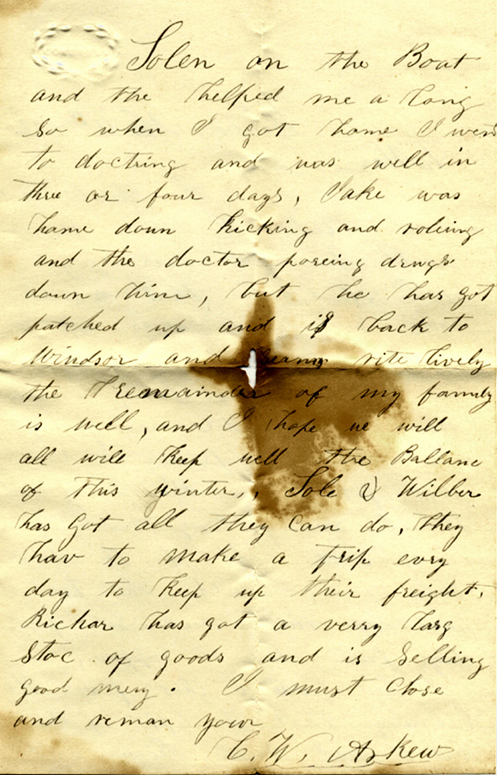 Solen on the Boat
and the helped me a long
so when I got home I went
to doctring and was well in
thre or four days, Jake was
home down kicking and roling
and the doctor poreing drugs
down him, but he has got
patched up and is back to
Windsor and rite lively
the tremainder of my family
is well, and I hope we will
all will keep well the Ballanc
of this winter, Sole & Wilber
has got all they can do, they
hav to make a trip evry
day to keep up their freight.
Richar has got a verry larg
Stoc of goods and is selling
good meny. I must close
and reman your
C. W. Askew